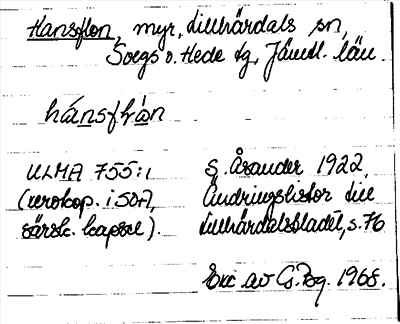 Hansflon, myr, Lillhärdals sn,
Svegs o. Hede tg, Jämtl. län
hánsfḷrȧn
ULMA 755:1 S. Åsander 1922,
(verokop. i SOA, Ändringslistor till
särsk. kapsel). Lillhärdalsbladet, s. 76
Exc av G. Bg. 1968.